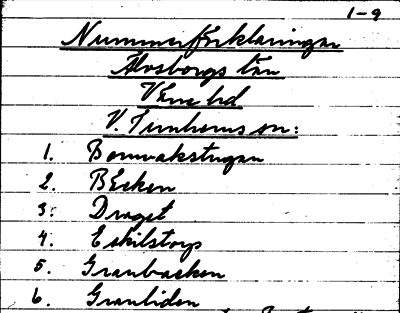 1-9
Nummerförklaringar
Älvsborgs län
Väne hd
V. Tunhems sn:
1. Bomvakstugan
2. BEcken
3. Draget
4. Eskilstorp
5. Granbacken
6. Granliden